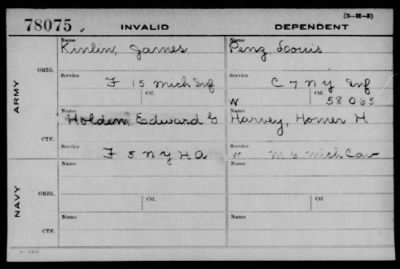 (3-21-3)
78075. INVALID DEPENDENT
Name Name
Kinlin, James Penz Louis
ARMY ORIG. Service Service
F 15 Mich Inf C 7 N Y Inf
Ctf. Ctf.
W 58065
Name Name
Holden Edward G Harvey, Homer H
CTF. Service Service
F 5 N Y H A W M 6 Mich Cav
NAVY ORIG. Name Name
Service Service
Ctf. Ctf.
Name Name
CTF. Service Service